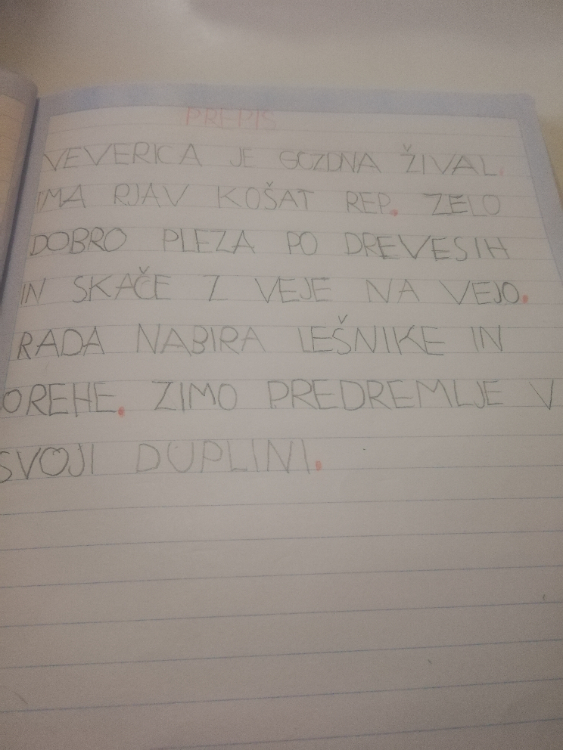 PREPIS
VEVERICA JE GOZDNA ŽIVAL.
IMA RJAV KOŠAT REP. ZELO
DOBRO PLEZA PO DREVESIH
IN SKAČE Z VEJE NA VEJO.
RADA NABIRA LEŠNIKE IN
OREHE. ZIMO PREDREMLJE V
SVOJI DUPLINI.